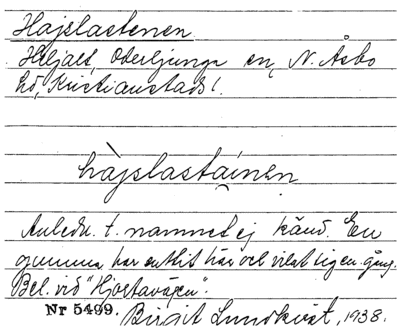 Hajslastenen
Hiljalt, Oderljunga en, N. Åsbo
hd, Kristianstads l.
hàjslastaínen
Anledn. t. namnet ej känd. En
gumma har en tid här och vilat sig en gång.
Bel. vid "Hjortavägen".
Nr 5499. Birgit Lundkvist, 1938.